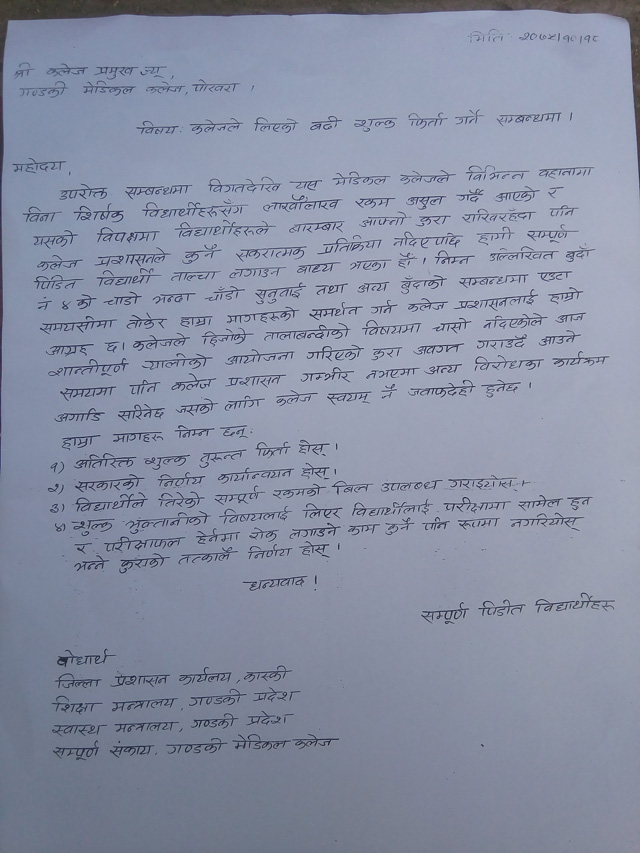 मिति: २०७५/१०/१८
श्री कलेज प्रमुख ज्यू,
गण्डकी मेडिकल कलेज, पोखरा ।
विषय: कलेजले लिएको बढी शुल्क फिर्ता गर्ने सम्बन्धमा ।
महोदय,
उपरोक्त सम्बन्धमा विगतदेखि यस मेडिकल कलेजले विभिन्न बहानामा
विना शिर्षक विद्यार्थीहरूसँग लाखौंलाख रकम असुल गर्दै आएको र
यसको विपक्षमा विद्यार्थीहरूले बारम्बार आफ्नो कुरा राखिरहँदा पनि
कलेज प्रशासनले कुनै सकरात्मक प्रतिक्रिया नदिएपछि हामी सम्पूर्ण
पिडित विद्यार्थी ताल्चा लगाउन बाध्य भएका हौं । निम्न उल्लिखित बुदाँ
नं ४ को चाडो भन्दा चाँडो सुनुवाई तथा अन्य बुँदाको सम्बन्धमा एउटा
समयसीमा तोकेर हाम्रा मागहरूको समर्थन गर्न कलेज प्रशासनलाई हाम्रो
आग्रह छ। कलेजले हिजोको तालाबन्दीको विषयमा चासो नदिएकोले आज
शान्तीपूर्ण र्‍यालीको आयोजना गरिएको कुरा अवगत गराउँदै आउने
समयमा पनि कलेज प्रशासन गम्भीर नभएमा अन्य विरोधका कार्यक्रम
अगाडि सारिनेछ जसको लागि कलेज स्वयम् नै जवाफदेही हुनेछ ।
हाम्रा मागहरू निम्न छन्:
१) अतिरिक्त शुल्क तुरून्त फिर्ता होस् ।
२) सरकारको निर्णय कार्यान्वयन होस् ।
३) विद्यार्थीले तिरेको सम्पूर्ण रकमको बिल उपलब्ध गराइयोस् ।
४) शुल्क भुक्तानीको विषयलाई लिएर विद्यार्थीलाई परीक्षामा सामेल हुन
र परीक्षाफल हेर्नमा रोक लगाउने काम कुनै पनि रूपमा नगरियोस्
भन्ने कुराको तत्कालै निर्णय होस् ।
धन्यवाद !
सम्पूर्ण पिडीत विद्यार्थीहरू
बोधार्थ
जिल्ला प्रशासन कार्यलय, कास्की
शिक्षा मन्त्रालय, गण्डकी प्रदेश
स्वास्थ मन्त्रालय, गण्डकी प्रदेश
सम्पूर्ण संकाय, गण्डकी मेडिकल कलेज